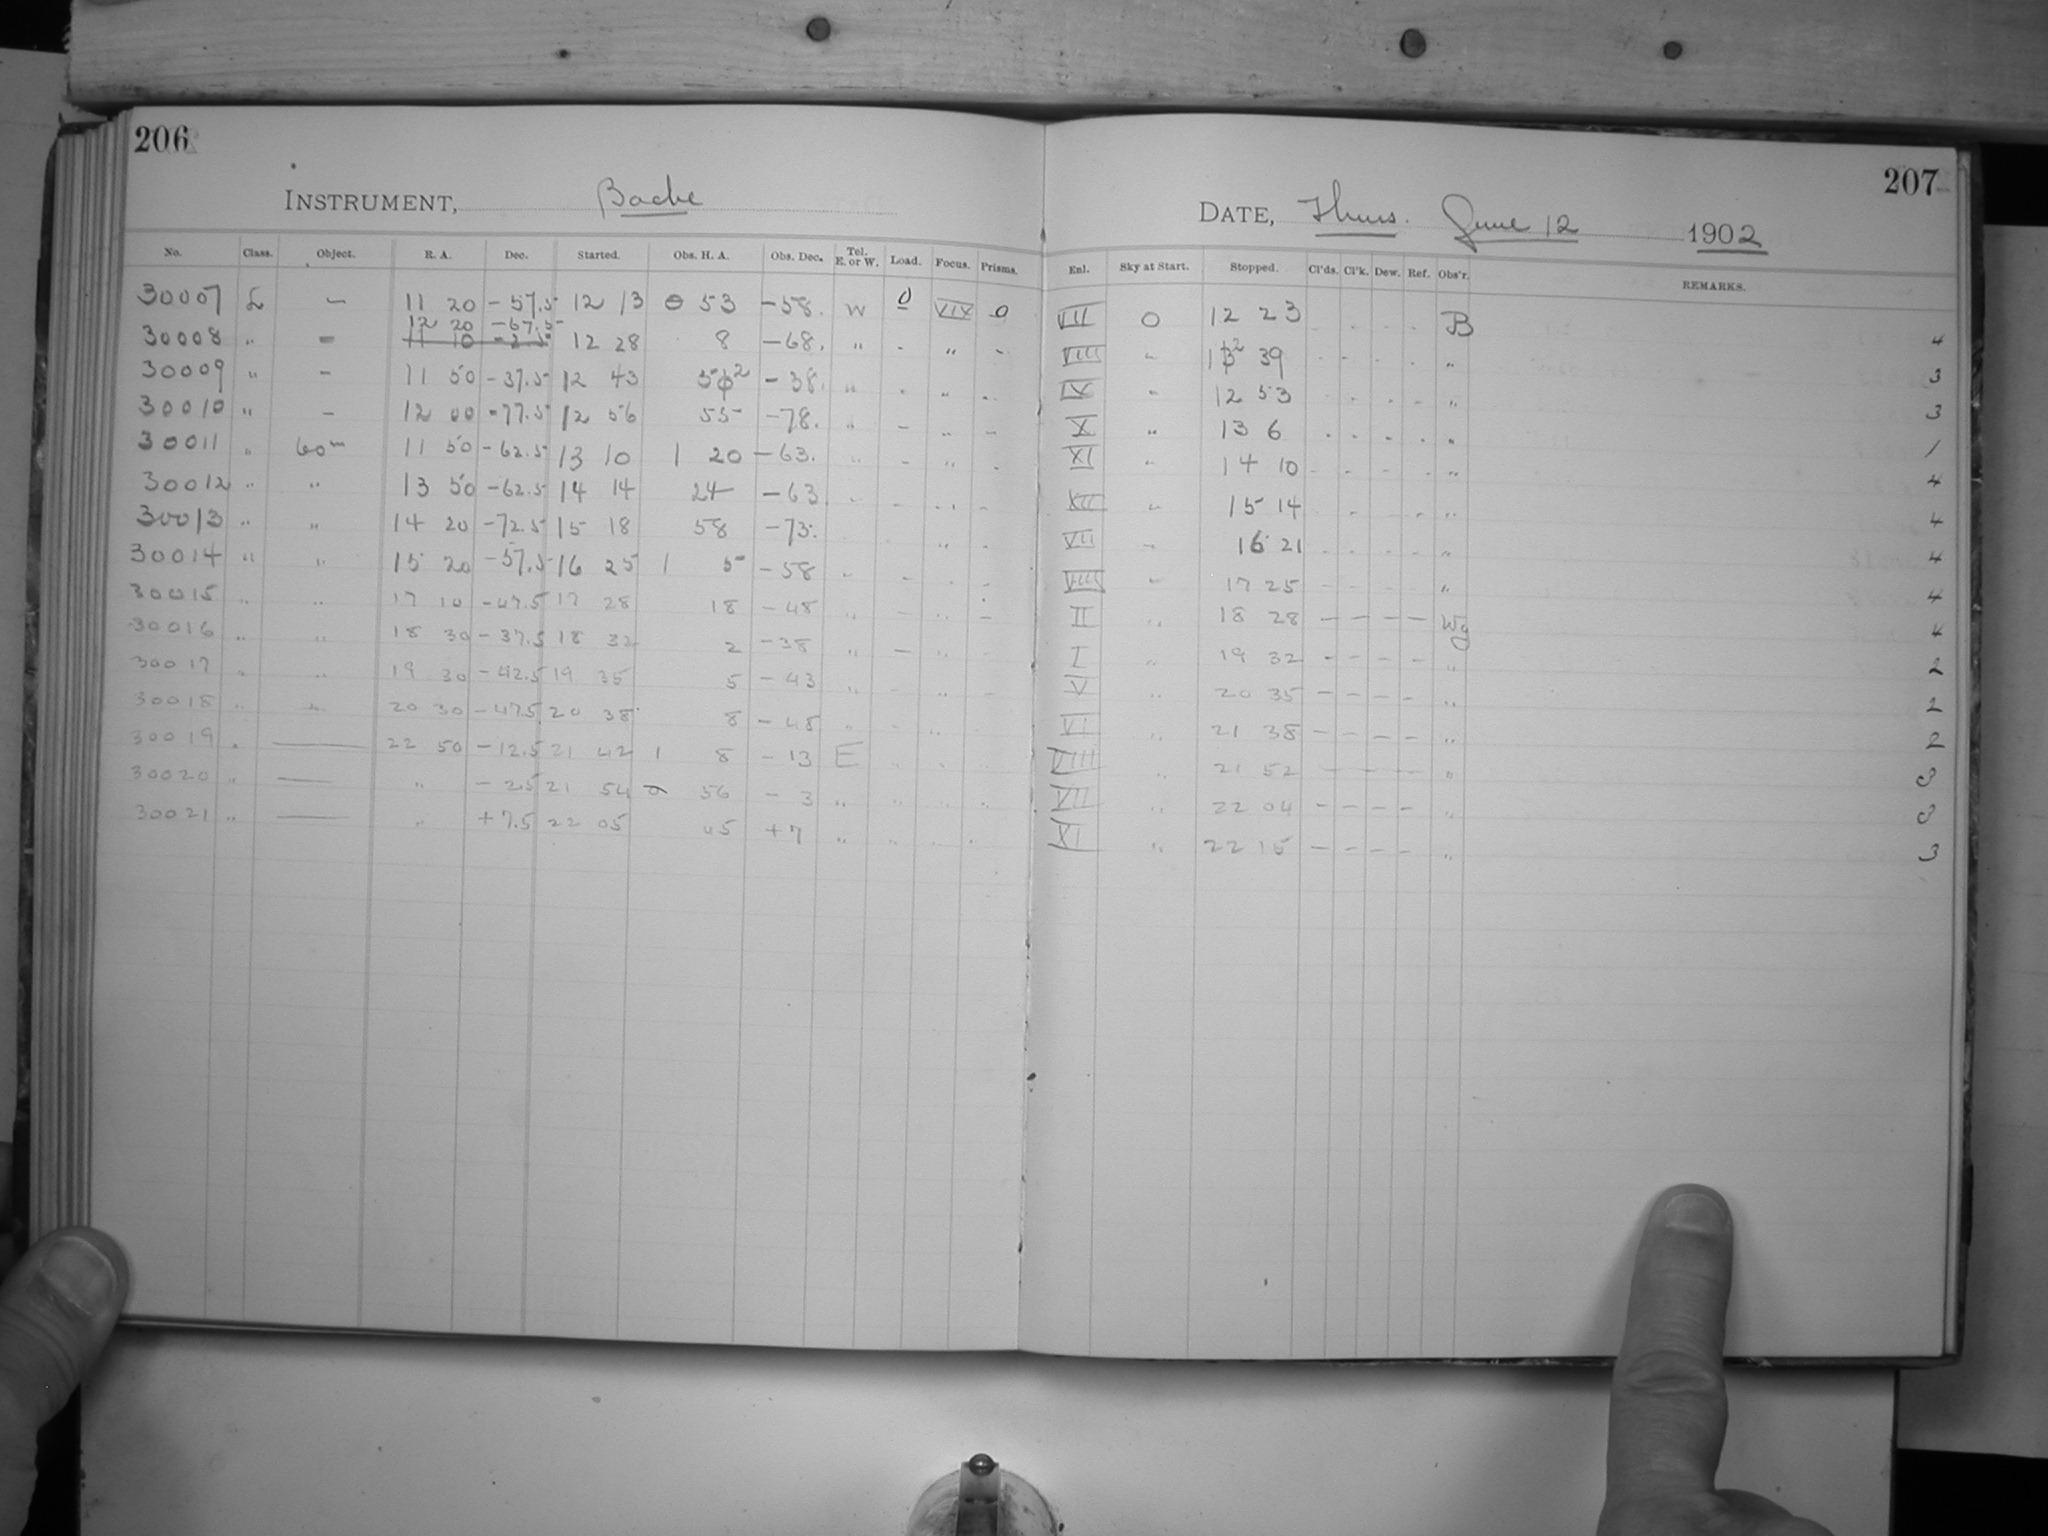 206
INSTRUMENT, Bache
No. Class. Object. R. A. Dec. Started. Obs. H. A. Obs. Dec. Tel. E. or W. Load. Focus. Prisms.
30007 L — 11 20 -57.5 12 13 0 53 -58. W 0 VIX 0
12 20 -67.5
30008 " = 11 10 -2.5 12 28 8 -68. " - " -
30009 " - 11 50 -37.5 12 43 52 -38. " - " -
30010 " - 12 00 -77.5 12 56 55 -78. " - " -
30011 " 60m 11 50 -62.5 13 10 1 20 -63. " - " -
30012 " " 13 50 -62.5 14 14 24 -63 " - " -
30013 " " 14 20 -72.5 15 18 58 -73. " -
30014 " " 15 20 -57.5 16 25 1 5 -58 " - " -
30015 " " 17 10 -47.5 17 28 18 -48 " - " -
30016 " " 18 30 -37.5 18 32 2 -38 " - " -
30017 " " 19 30 -42.5 19 35 5 -43 " - " -
30018 " " 20 30 -47.5 20 38 8 -48 " - "
30019 " — 22 50 -12.5 21 42 1 8 -13 E " "
30020 " — " -2.5 21 54 0 56 -3 " " " "
30021 " — " +7.5 22 05 45 +7 " " " "
207
DATE, Thurs. June 12 1902
Enl. Sky at Start. Stopped. Cl'ds. Cl'k. Dew. Ref. Obs'r. REMARKS.
VII O 12 23 - - - - B 4
VIII " 12 39 - - - - " 3
IX " 12 53 - - - - " 3
X " 13 6 - - - - " 1
XI " 14 10 - - - - " 4
XII " 15 14 - - - - " 4
VII " 16 21 - - - - " 4
VIII " 17 25 - - - - " 4
II " 18 28 — — — — Wg 4
I " 19 32 - - - - " 2
V " 20 35 - - - - " 2
VI " 21 38 - - - - " 2
VIII " 21 52 — — — — " 3
VII " 22 04 - - - - " 3
XI " 22 15 - - - - " 3